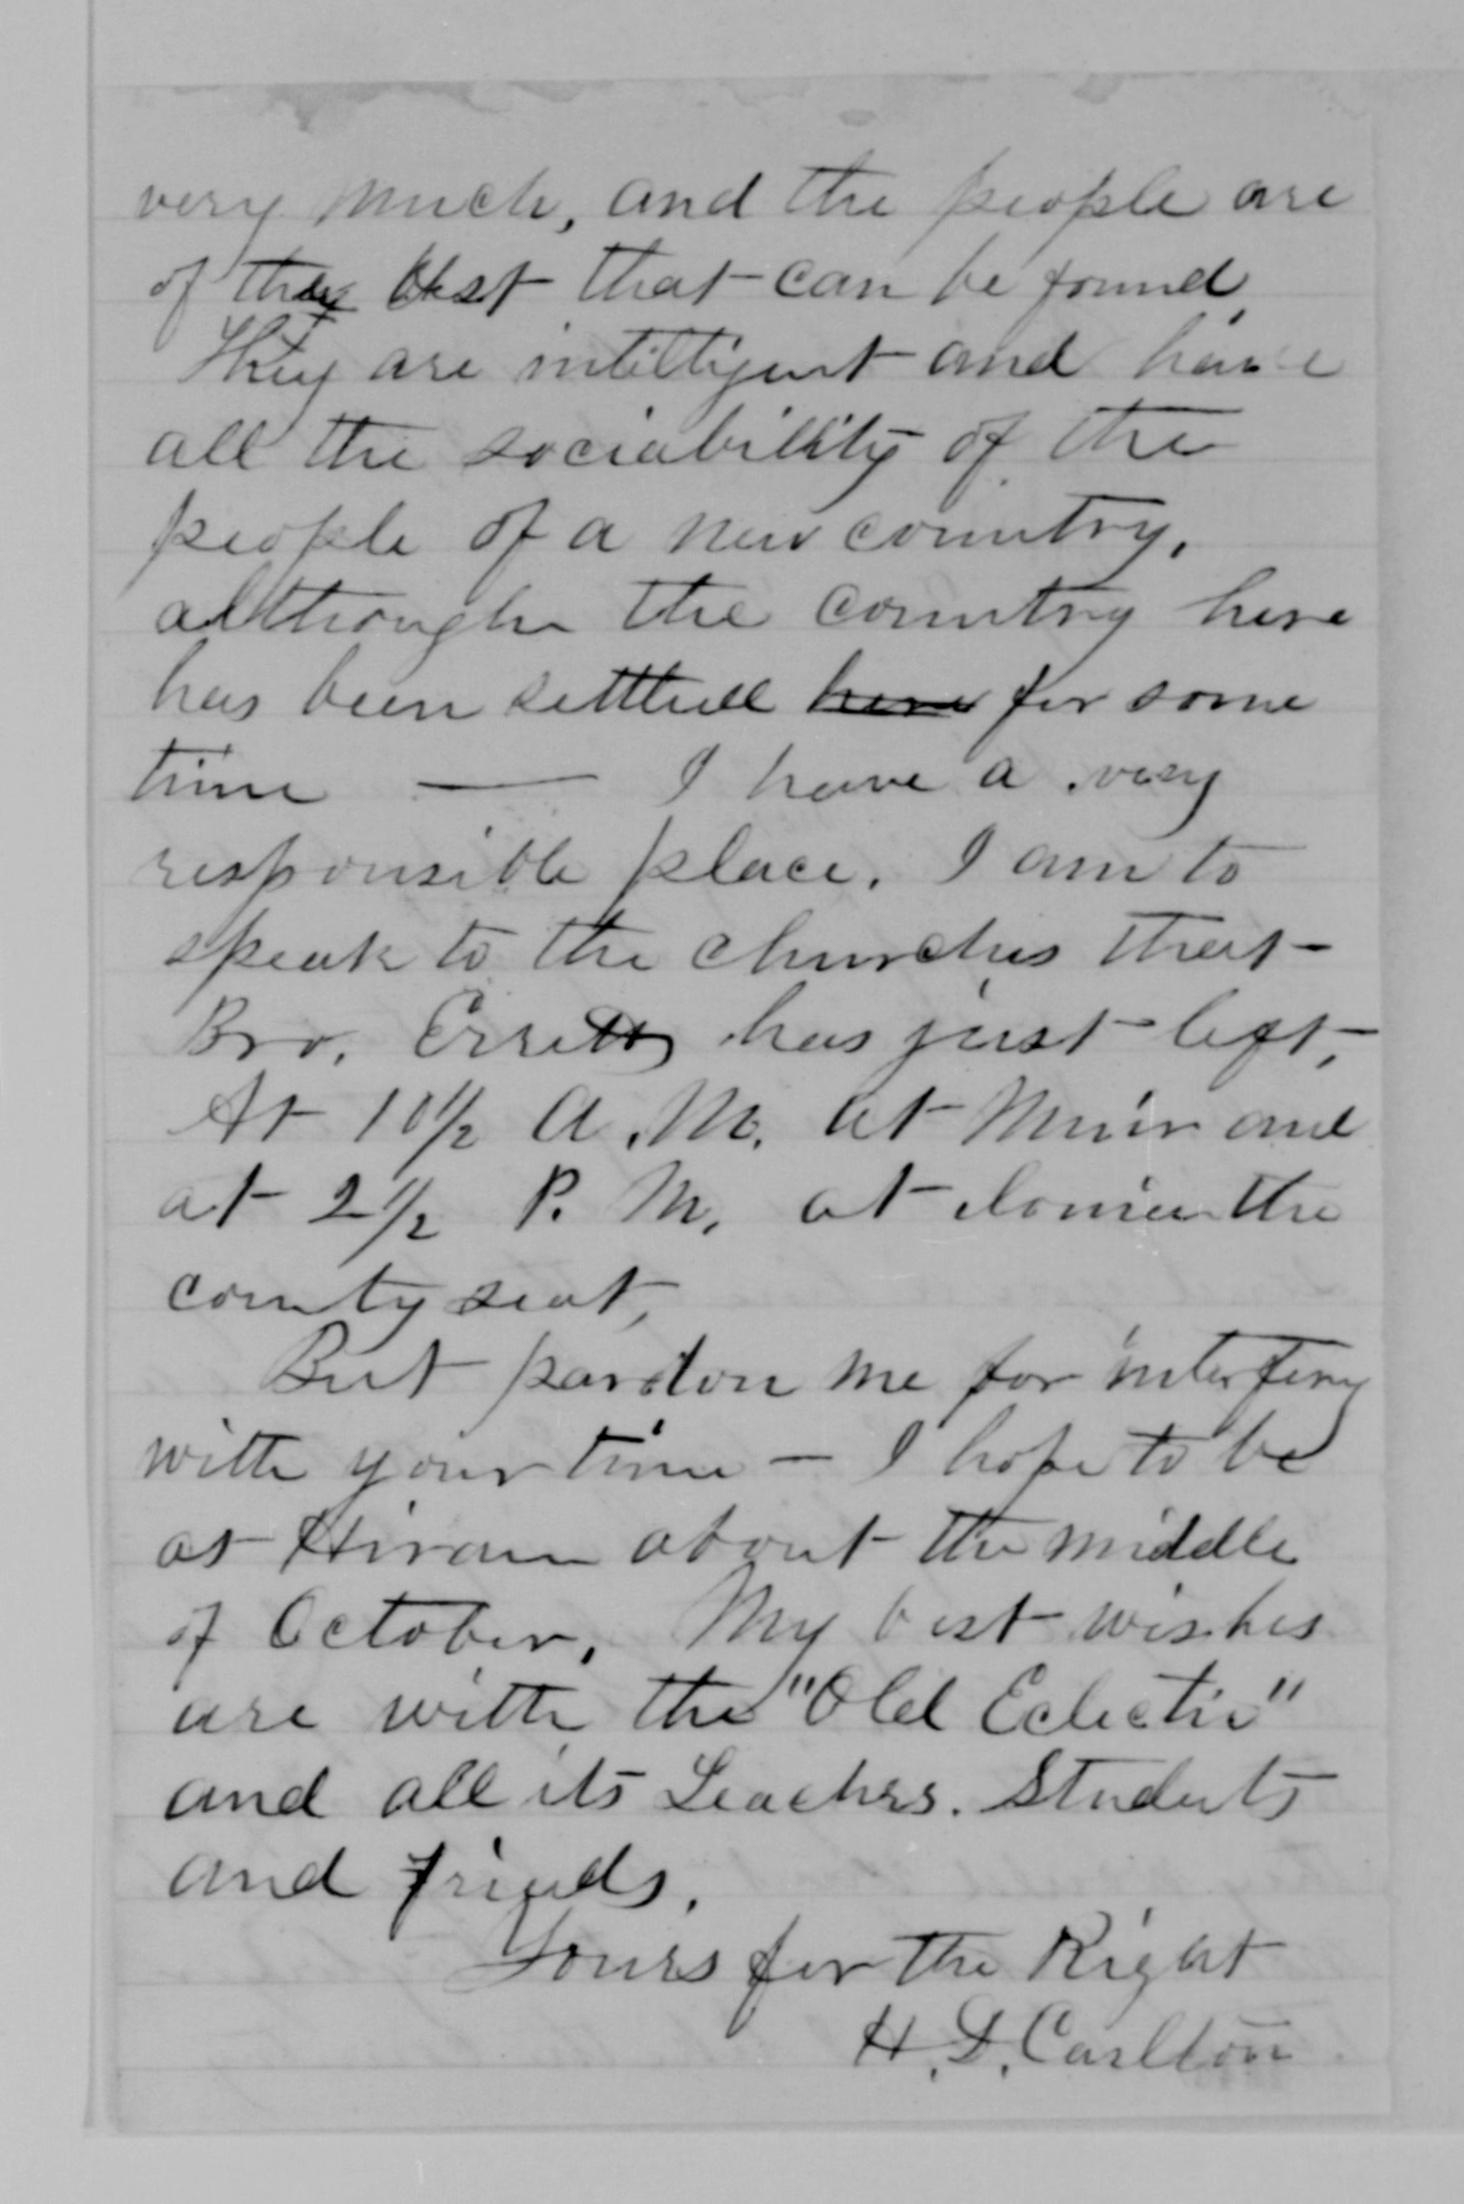 very much, and the people are
of the best that can be found,
They are intelligent and have
all the sociability of the
people of a new country,
although the country here
has been settled here for some
time — I have a very
responsible place. I am to
speak to the churches that
Bro. Errett has just left,
At 10 1/2 A. M. at Muir and
at 2 1/2 P. M. at Ionia the
county seat,
But pardon me for interfering
with your time — I hope to be
at Hiram about the middle
of October, My best wishes
are with the "Old Eclectic"
and all its Teachers. Students
and friends.
Yours for the Right
H. D. Carlton